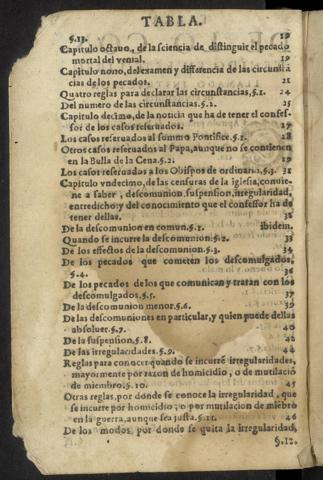 TABLA.
§.13. 19
Capitulo octauo, de la sciencia de distinguir el pecado
mortal del venial. 19
Capitulo nono, del examen y differencia de las circunstā
cias de los pecados. 21
Quatro reglas para declarar las circunstancias. §.1. 24
Del numero de las circunstancias. §.2. 25
Capitulo decimo, de la noticia que ha de tener el confes-
sor de los casos reseruados. 27
Los casos reseruados al summo Pontifice. §.1. 28
Otros casos reseruados al Papa, aunque no se contienen
en la Bulla de la Cena. §.2. 29
Los casos reseruados a los Obispos de ordinario, §.3. 31
Capitulo vndecimo, de las censuras de la iglesia, conuie-
ne a saber, descomunion, suspension, irregularidad,
entredicho y del conocimiento que el confessor ha de
tener dellas. 32
De la descomunion en comun. §.1. ibidem.
Quando se incurre la descomunion. §.2. 33
De los effectos de la descomunion. §.3. 34
De los pecados que cometen los descomulgados,
§.4. 36
De los pecados de los que comunican y tratan con los
descomulgados. §.5. 37
De la descomunion menor. §.6. 39
De las descomuniones en particular, y quien puede dellas
absoluer. §.7. 40
De la suspension. §.8. 42
De las irregularidades. §.9. 44
Reglas para conocer quando se incurre irregularidades,
mayormente por razon de homicidio, o de mutilaciō
de miembro. §.10. 45
Otras reglas, por donde se conoce la irregularidad, que
se incurre por homicidio, o por mutilacion de miēbro
en la guerra, aunque sea justa. §.11. 46
De los modos por donde se quita la irregularidad,
§.12.